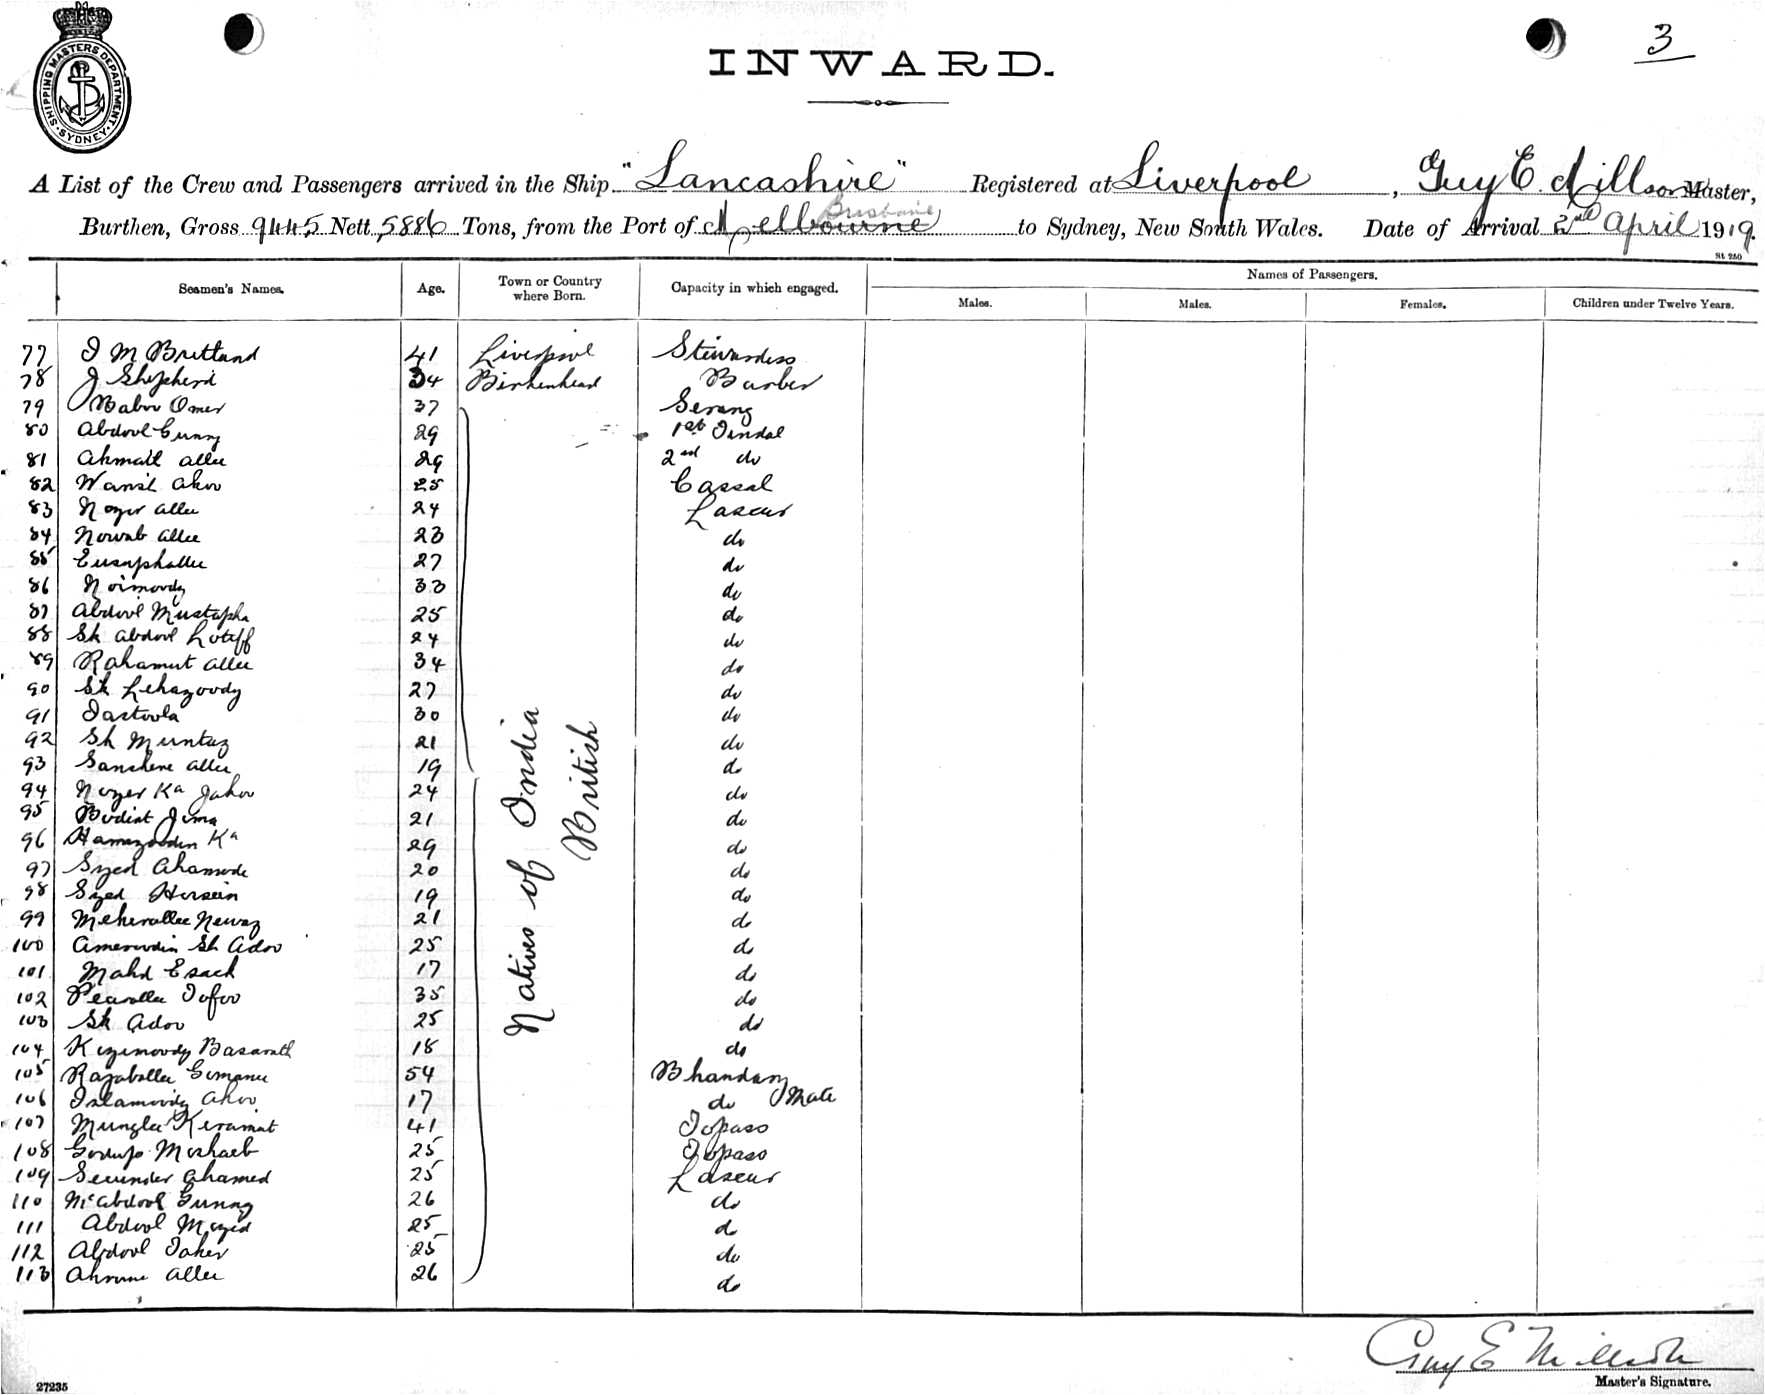 SHIPPING MASTERS DEPARTMENT. SYDNEY
3
INWARD.
A List of the Crew and Passengers arrived in the Ship "Lancashire" Registered at Liverpool, Guy E. Millson Master,
Brisbane
Burthen, Gross 9445 Nett 5886 Tons, from the Port of Melbourne to Sydney, New South Wales. Date of Arrival 2nd April 1919.
St 250
Seamen's Names. Age. Town or Country where Born. Capacity in which engaged. Names of Passengers.
Males. Males. Females. Children under Twelve Years.
77 I M Brettand 41 Liverpool Stewardess
78 J Shepherd 34 Birkenhead Barber
79 Baboo Omer 37 Serang
80 Abdool Gunny 29 1st Tindal
81 Ahmait Allee 29 2nd do
82 Wansil Akoo 25 Cassal
83 Nozir Allee 24 Lascar
84 Nowab Allee 23 do
85 Eusuphallee 27 do
86 Noimoody 33 do
87 Abdool Mustapha 25 do
88 Sk Abdool Loteff 24 do
89 Rahamut Allee 34 do
90 Sk Lehazoody 27 do
91 Jastoola 30 do
92 Sk Muntaz 21 do
93 Sanshere Allee 19 do
94 Nozer Ka Jakov 24 do
95 Budiat Juma 21 do
96 Hamezooden Ka 29 do
97 Syed Ahamode 20 do
98 Syed Hossein 19 do
99 Meherallee Newaz 21 do
100 Ameroodin Sk Adoo 25 do
101 Mahd Esack 17 do
102 Pearallee Tofoo 35 do
103 Sk Adoo 25 do
104 Kezimoody Basarath 18 do
105 Razaballee Gomanee 54 Bhandary
106 Islamoody Akoo 17 do Mate
107 Munglee Keramat 41 Topass
108 Goolup Moshaeb 25 Topass
109 Secunder Ahamed 25 Lascar
110 Mc Abdool Gunny 26 do
111 Abdool Mozid 25 do
112 Abdool Taher 25 do
113 Akrame Allee 26 do
Natives of India
British
Guy E Millson
Master's Signature.
27235